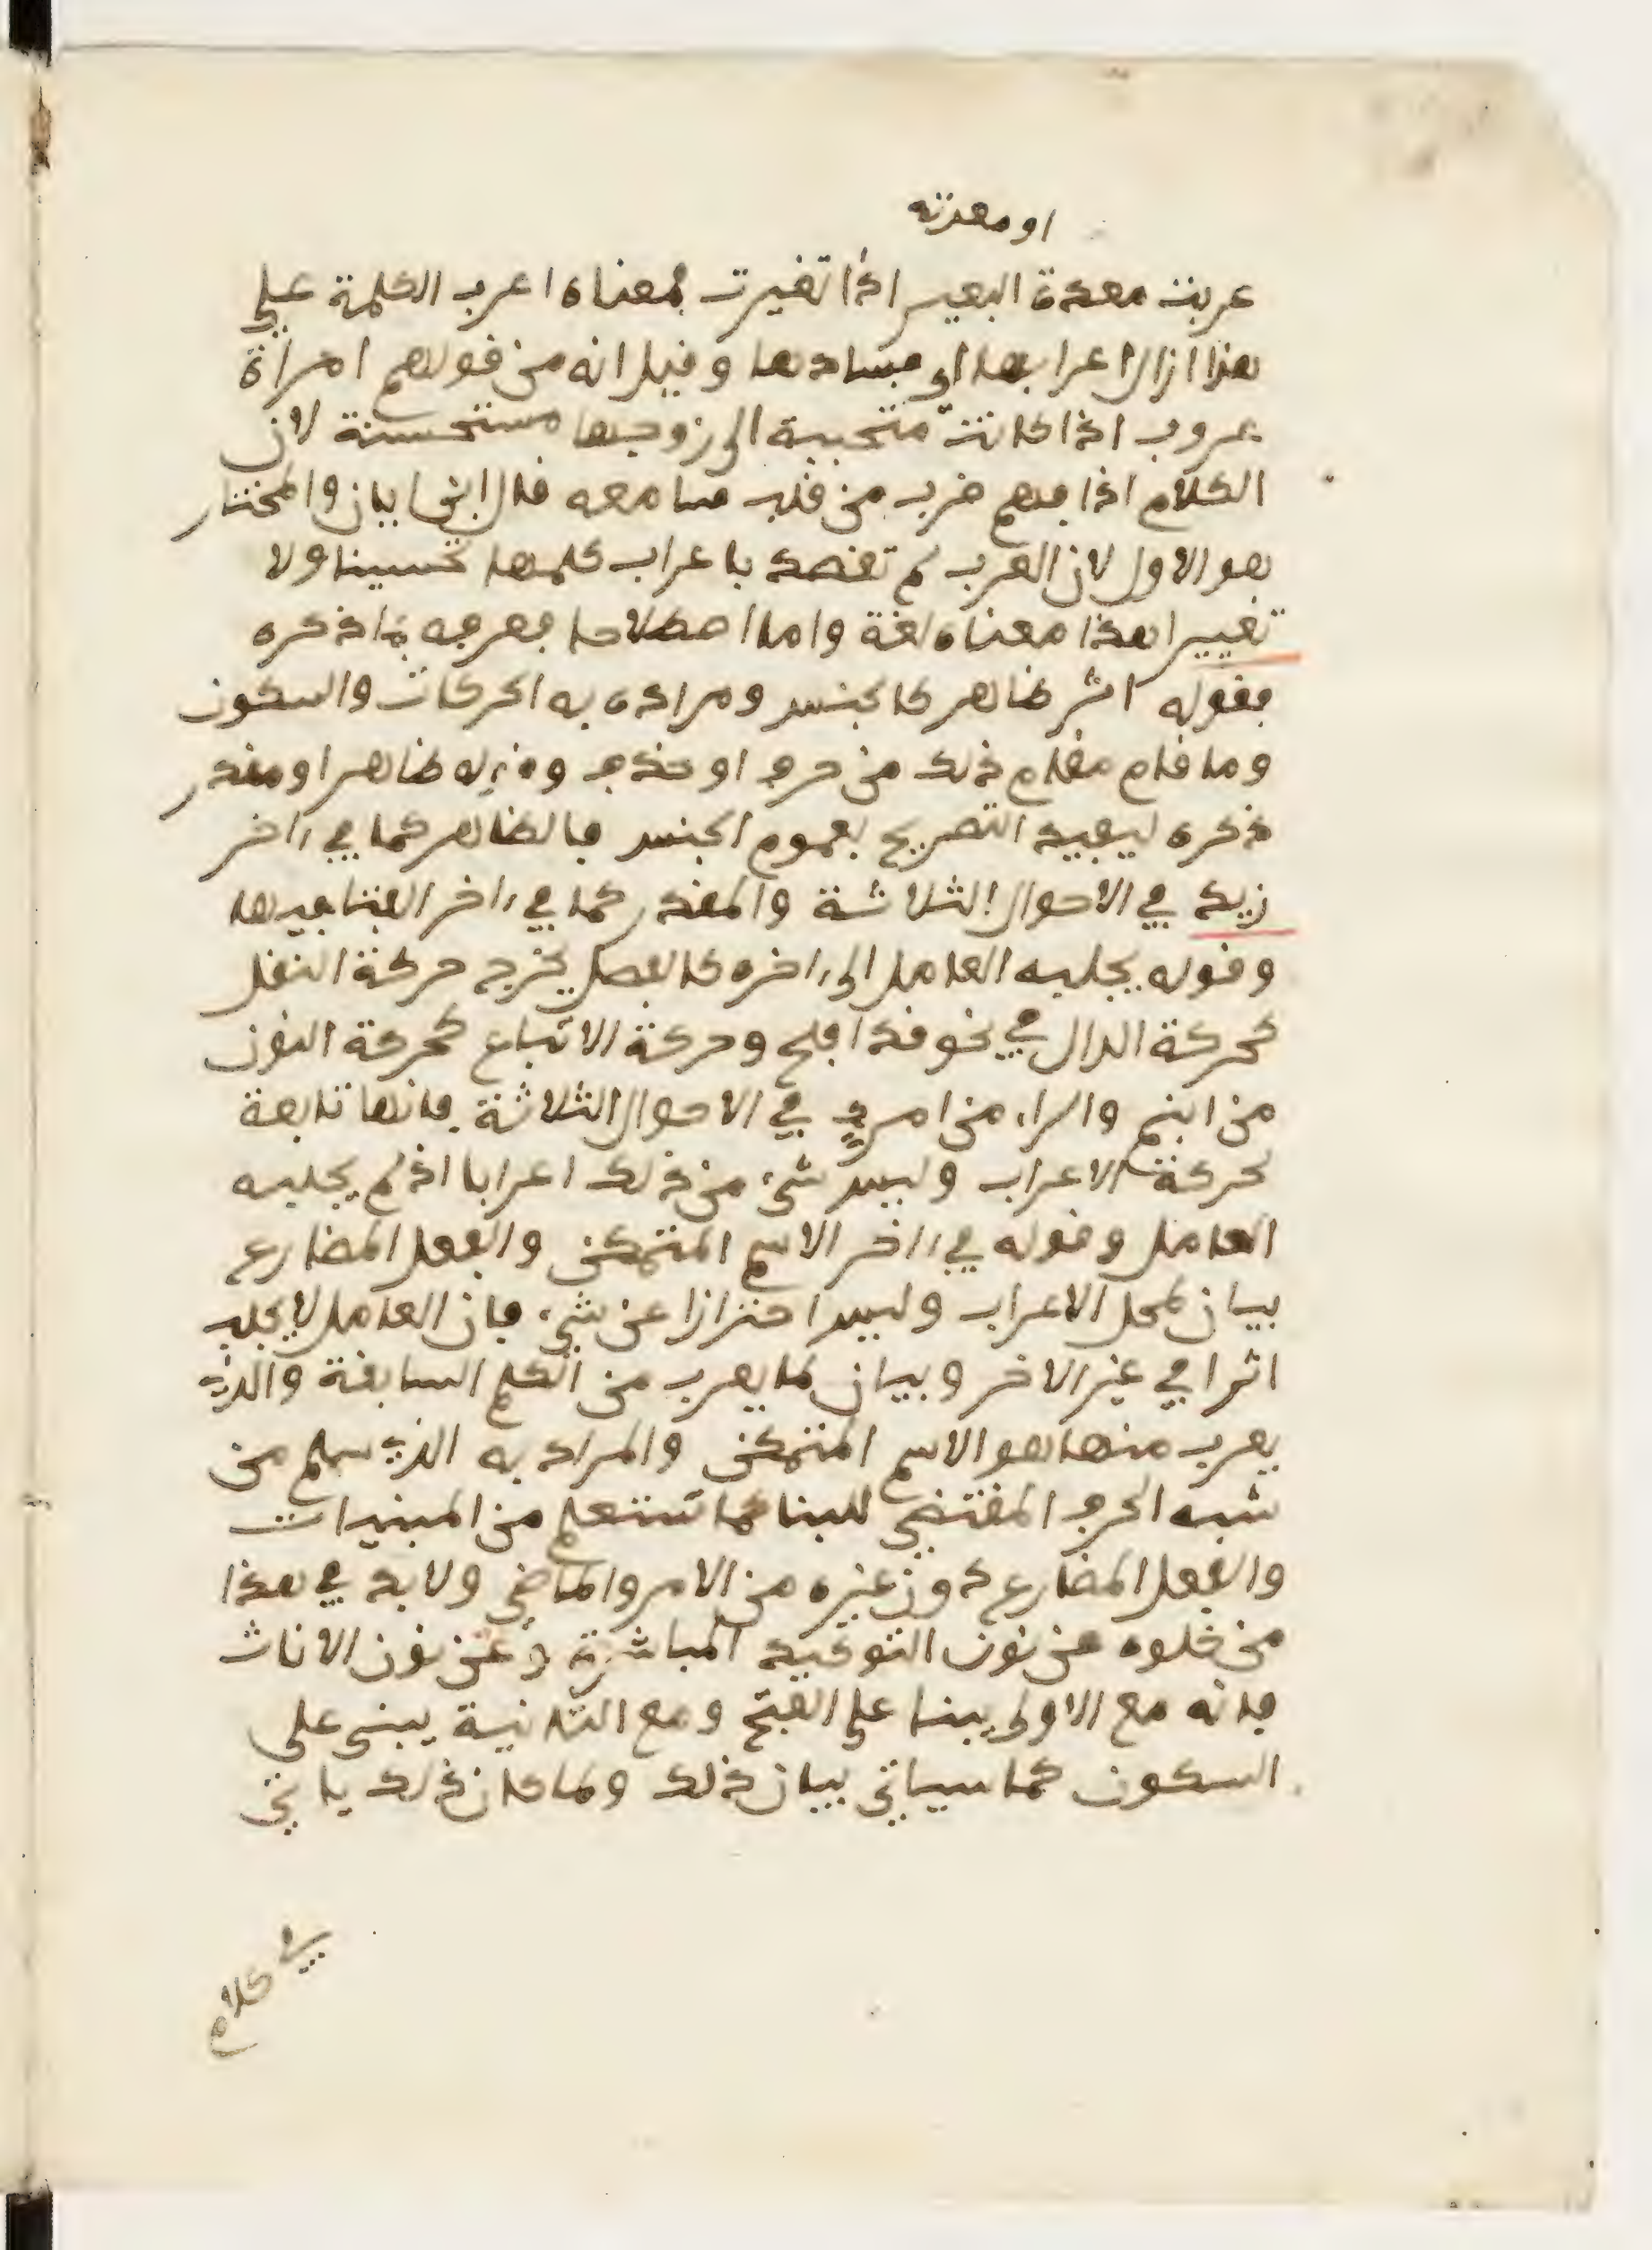 او معدته
عربت معدة البعير اذا تغيرت فمعناه اعرب الكلمة على
هذا ازال اعرابها اي فسادها وقيل انه من قولهم امراة
عروب اذا كانت متحببة الى زوجها مستحسنة لان
الكلام اذا فهم ضرب من قلب سامعه قال ابن اياز والمختار
هو الاول لان العرب لم تقصد باعراب كلمها تحسينا ولا
تغييرا هذا معناه لغة واما اصطلاحا فعرفه بما ذكره
فقوله اثر ظاهر كالجنس ومراده به الحركات والسكون
وما قام مقام ذلك من حرف او حذف وقوله ظاهر او مقدر
ذكره ليفيد التصريح بعموم الجنس فالظاهر كما في ءاخر
زيد في الاحوال الثلاثة والمقدر كما في ءاخر الفتا فيها
وقوله يجلبه العامل الى ءاخره كالفصل يخرج حركة النقل
كحركة الدال في نحو قد افلح وحركة الاتباع كحركة النون
من ابنم والراء من امرء في الاحوال الثلاثة فانها تابعة
لحركة الاعراب وليس شيء من ذلك اعرابا اذ لم يجلبه
العامل وقوله في ءاخر الاسم المتمكن والفعل المضارع
بيان لمحل الاعراب وليس احترازا عن شيء فان العامل لا يجلب
اثرا في غير الاخر وبيان لما يعرب من الكلم السابقة والذي
يعرب منها هو الاسم المتمكن والمراد به الذي سلم من
شبه الحرف المقتضي للبنا كما ستعلم من المبنيات
والفعل المضارع دون غيره من الامر والماضي ولا بد في هذا
من خلوه عن نون التوكيد المباشرة وعن نون الاناث
فانه مع الاولى يبنا على الفتح ومع الثانية يبنى على
السكون كما سياتي بيان ذلك ولما كان ذلك ياتي
كلام